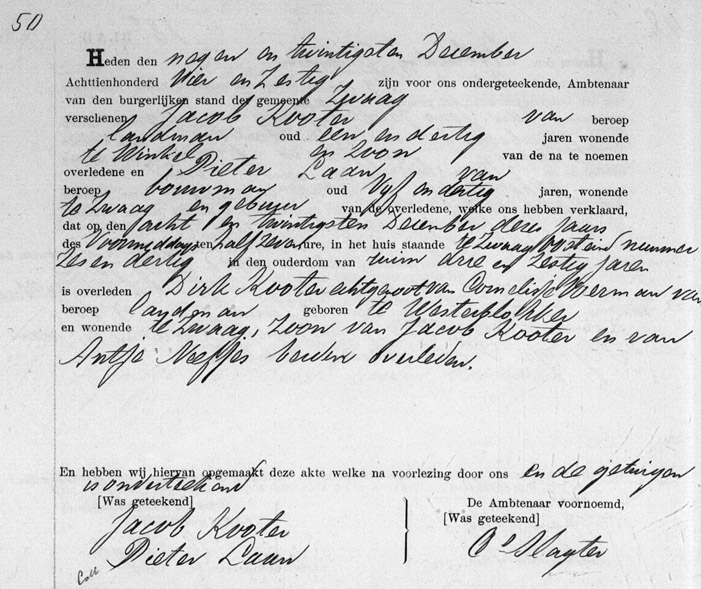 50
Heden den negen en twintigsten December
Achttienhonderd Vier en Zestig zijn voor ons ondergeteekende, Ambtenaar
van den burgerlijken stand der gemeente Zwaag
verschenen Jacob Kooter van beroep
landman oud een en dertig jaren wonende
te Winkel en zoon van de na te noemen
overledene en Pieter Laan van
beroep bouwman oud Vyf en dertig jaren, wonende
te Zwaag en gebuur van de overledene, welke ons hebben verklaard,
dat op den acht en twintigsten December dezes jaars
des Voormiddags ten half zeven ure, in het huis staande te Zwaag nummer
Zes en dertig in den ouderdom van ruim drie en Zestig jaren
is overleden Dirk Kooter echtgenoot van Cornelisje van
beroep landman geboren te Westerblokker
en wonende te Zwaag, Zoon van Jacob Kooter en van
Antje Neefjes beiden overleden.
En hebben wij hiervan opgemaakt deze akte welke na voorlezing door ons en de getuigen
is onderteekend
[Was geteekend]
Jacob Kooter
Pieter Laan
De Ambtenaar voornoemd,
[Was geteekend]
Slagter
Coll